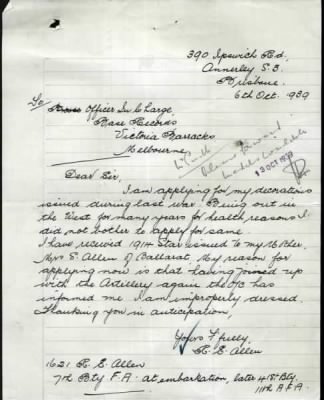 390 Ipswich Rd.
Annerley S.3.
Brisbane.
6th Oct. 1939
To
Officer In Charge,
Base Records
Victoria Barracks
Melbourne.
13 OCT 1939
Dear Sir,
I am applying for my decorations
issued during last war. Being out in
the West for many years for health reasons I
did not bother to apply for same.
I have received 1914 Star issued to my Mother
Mrs E Allen of Ballarat. My reason for
applying now is that having joined up
with the Artillery again the O/C has
informed me I am improperly dressed.
Thanking you in anticipation,
Yours Ffully.
R. E. Allen
1621 R. E. Allen
7th Bty F.A. at embarkation, later 41st Bty.
11th A.F.A.